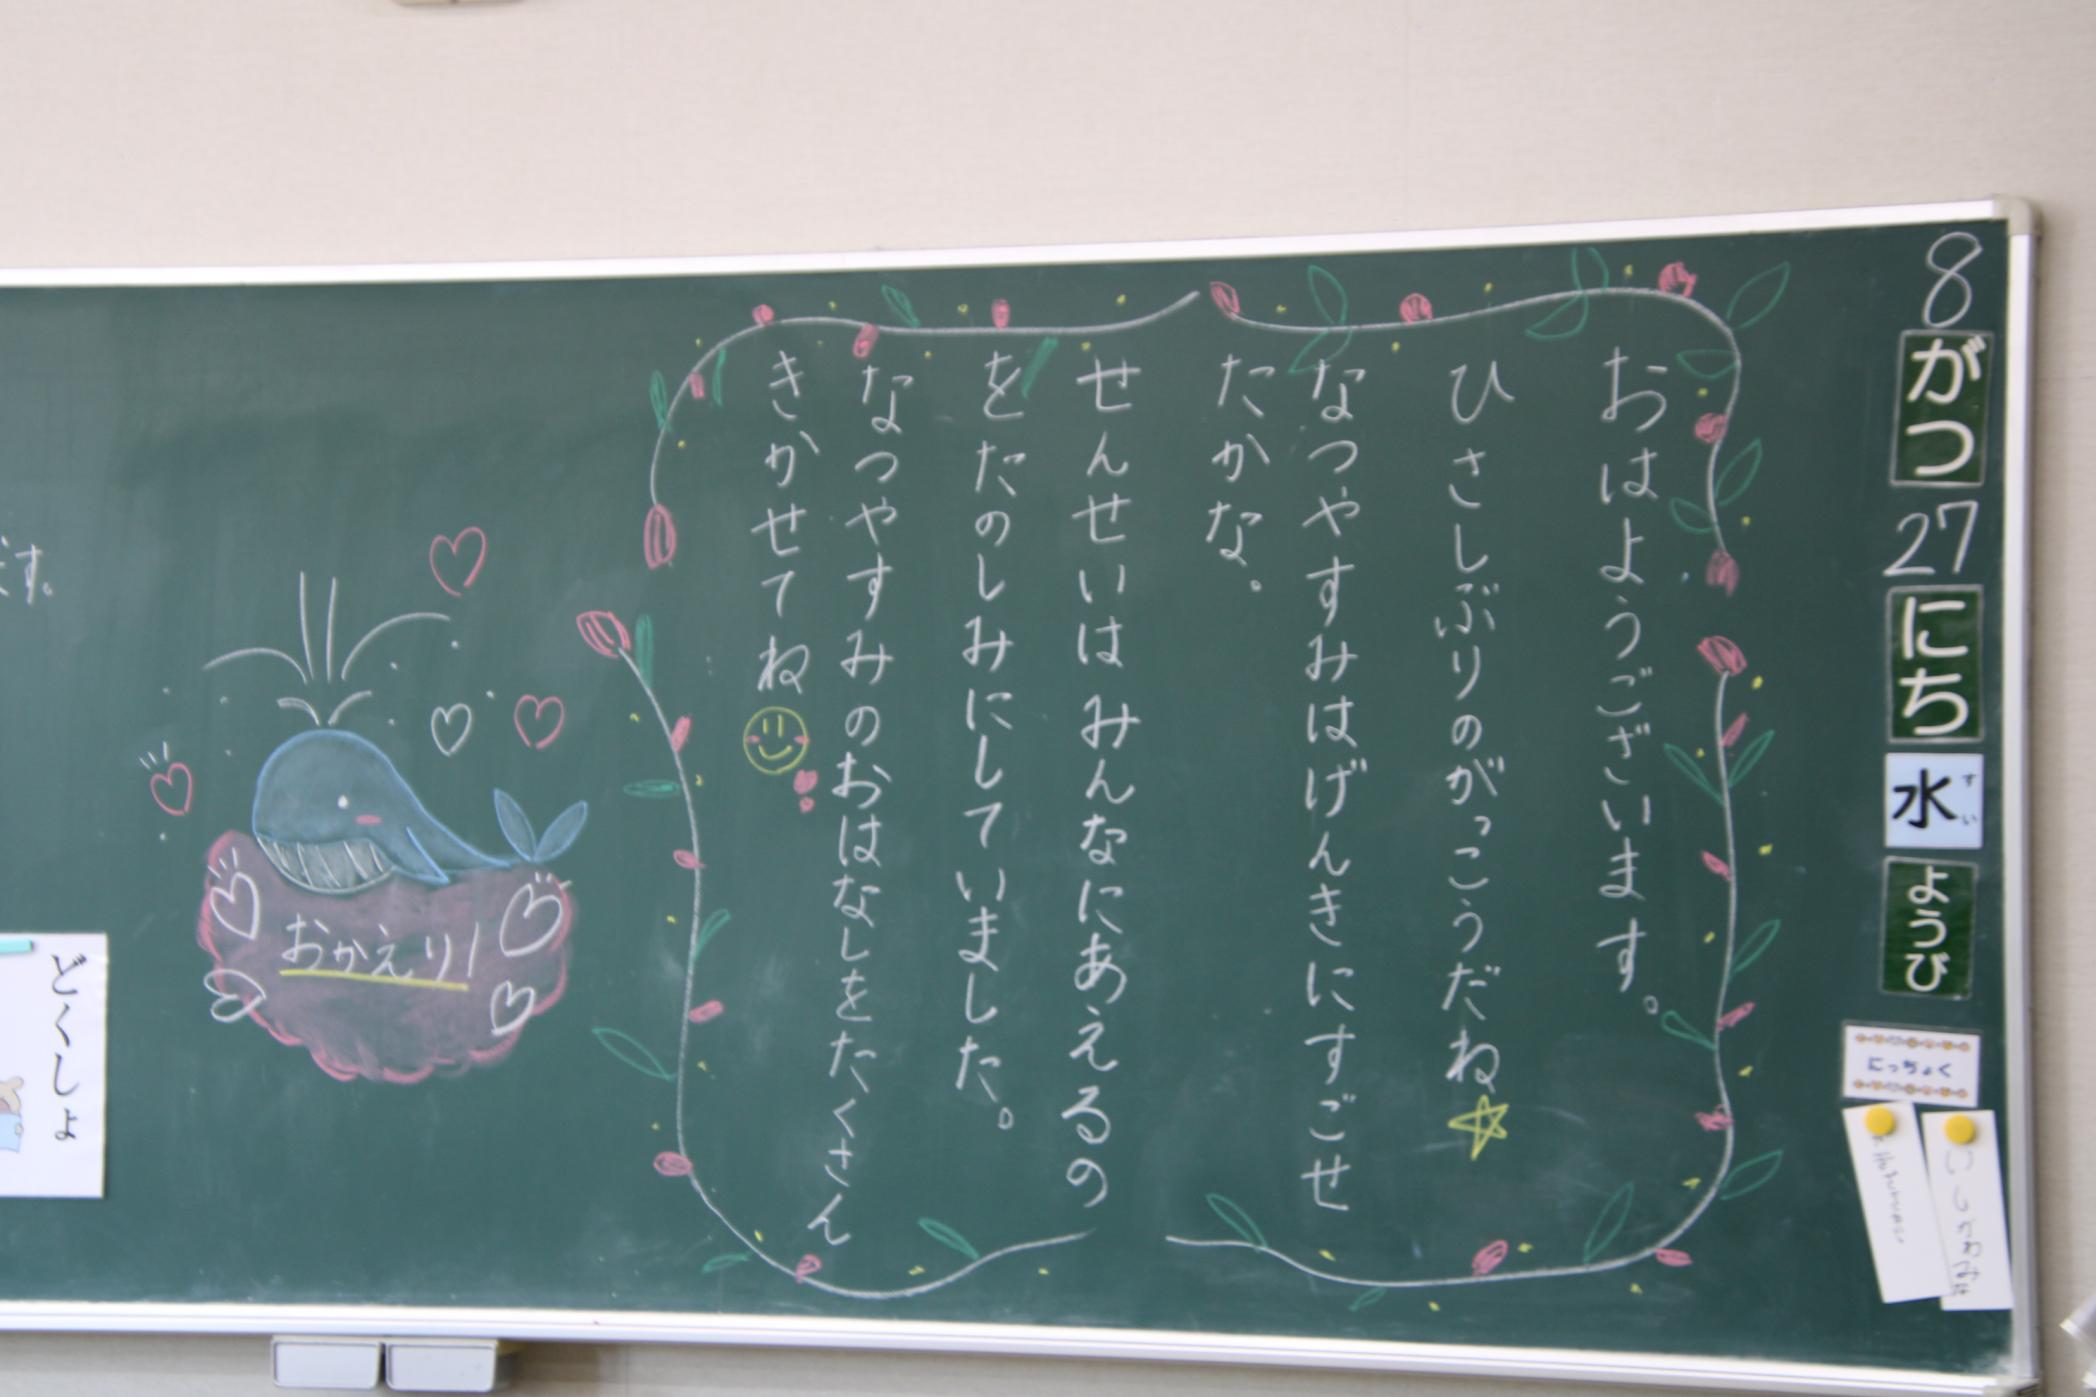 8がつ27にち水ようび
すい
にっちょく
おはようございます。
ひさしぶりのがっこうだね
なつやすみはげんきにすごせ
たかな。
せんせいは みんなにあえるの
をたのしみにしていました。
なつやすみのおはなしをたくさん
きかせてね
おかえり!
す。
どくしょ